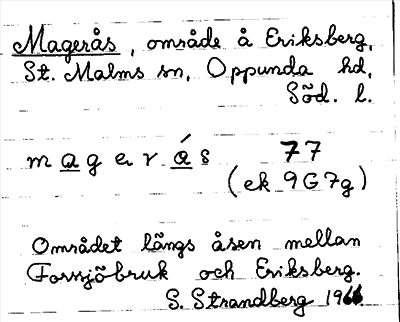 Magerås, område å Eriksberg,
St. Malms sn, Oppunda hd,
Söd. l.
m a g e r å s 77
(ek 9G7g)
Området längs åsen mellan
Forssjöbruk och Eriksberg.
S. Strandberg 1966